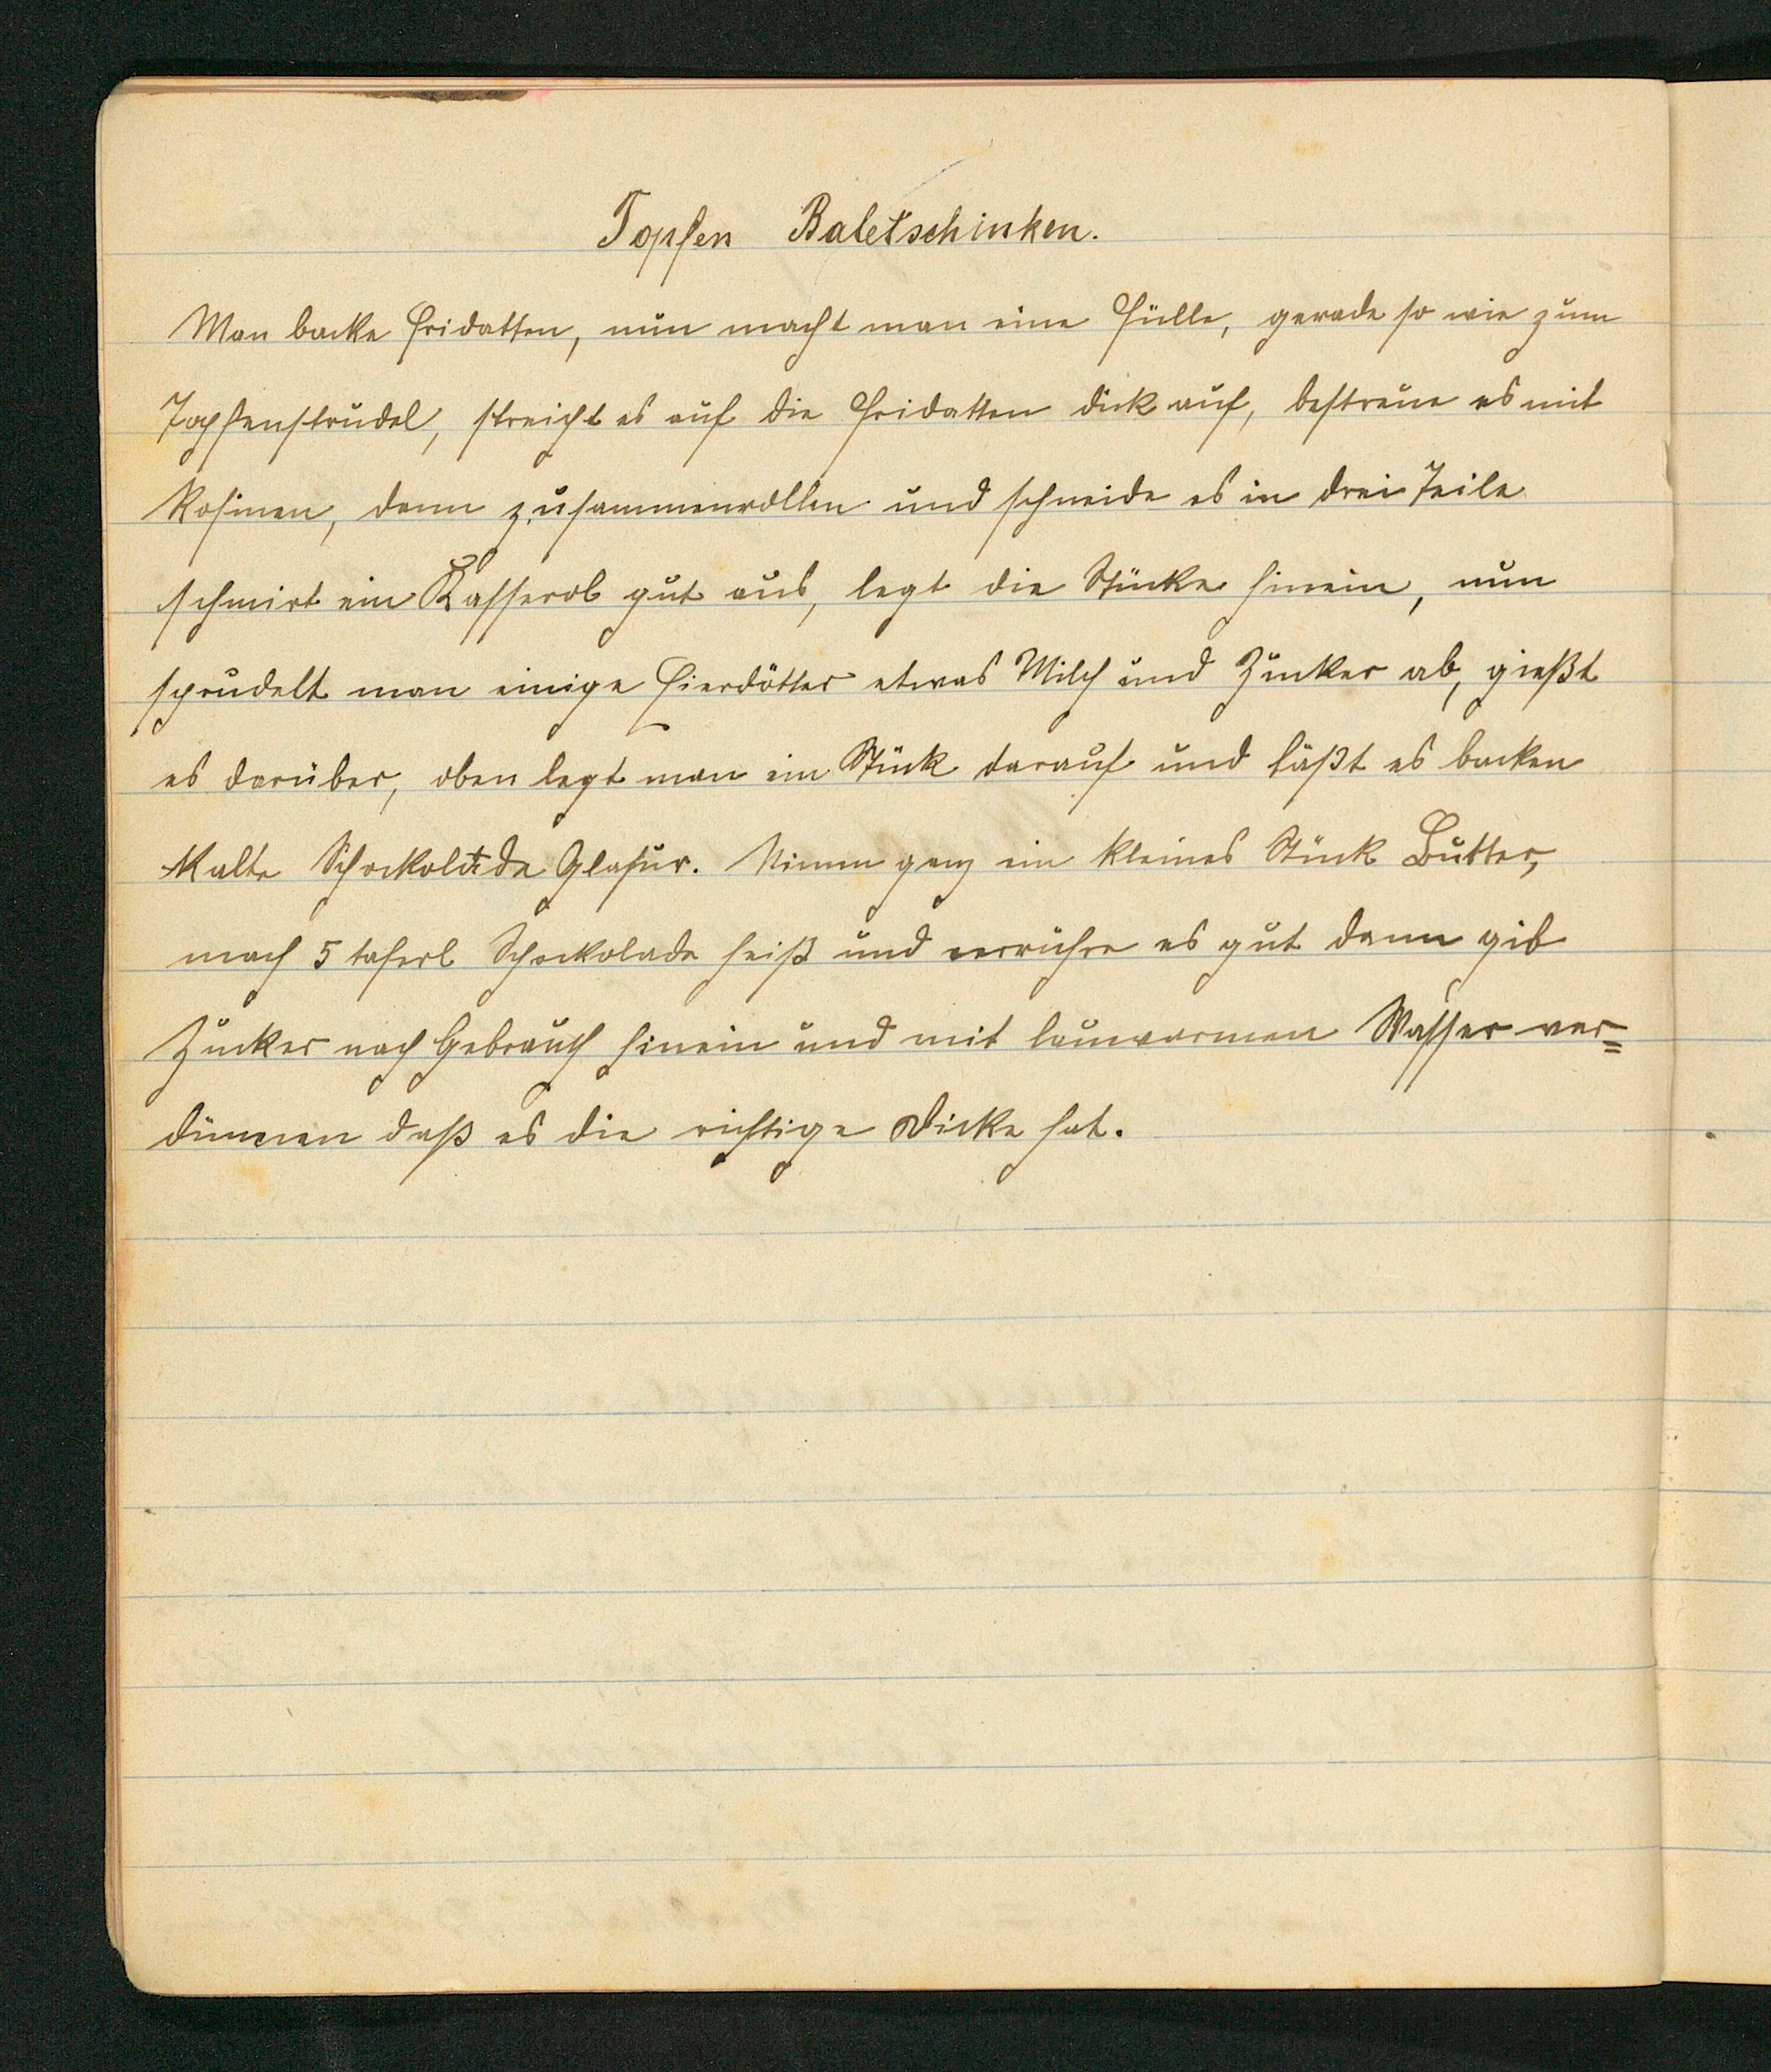 Topfen Baletschinken.
Man backe Fridatten, nun macht man eine Fülle, gerade so wie zum
Topfenstrudel, streicht es auf die Fridatten dick auf, bestreue es mit
Rosinen, dann zusammenrollen und schneide es in drei Teile
schmirt ein Kasserol gut aus, legt die Stücke hinein, nun
sprudelt man einige Eierdötter etwas Milch und Zucker ab, gießt
es darüber, oben legt man ein Stück darauf und läßt es backen
Kalte Schokolade Glasur. Nimm ganz ein kleines Stück Butter,
mach 5 taferl Schokolade heiß und verrühre es gut dann gib
Zucker nach Gebrauch hinein und mit lauwarmen Wasser ver=
dünnen daß es die richtige Dicke hat.